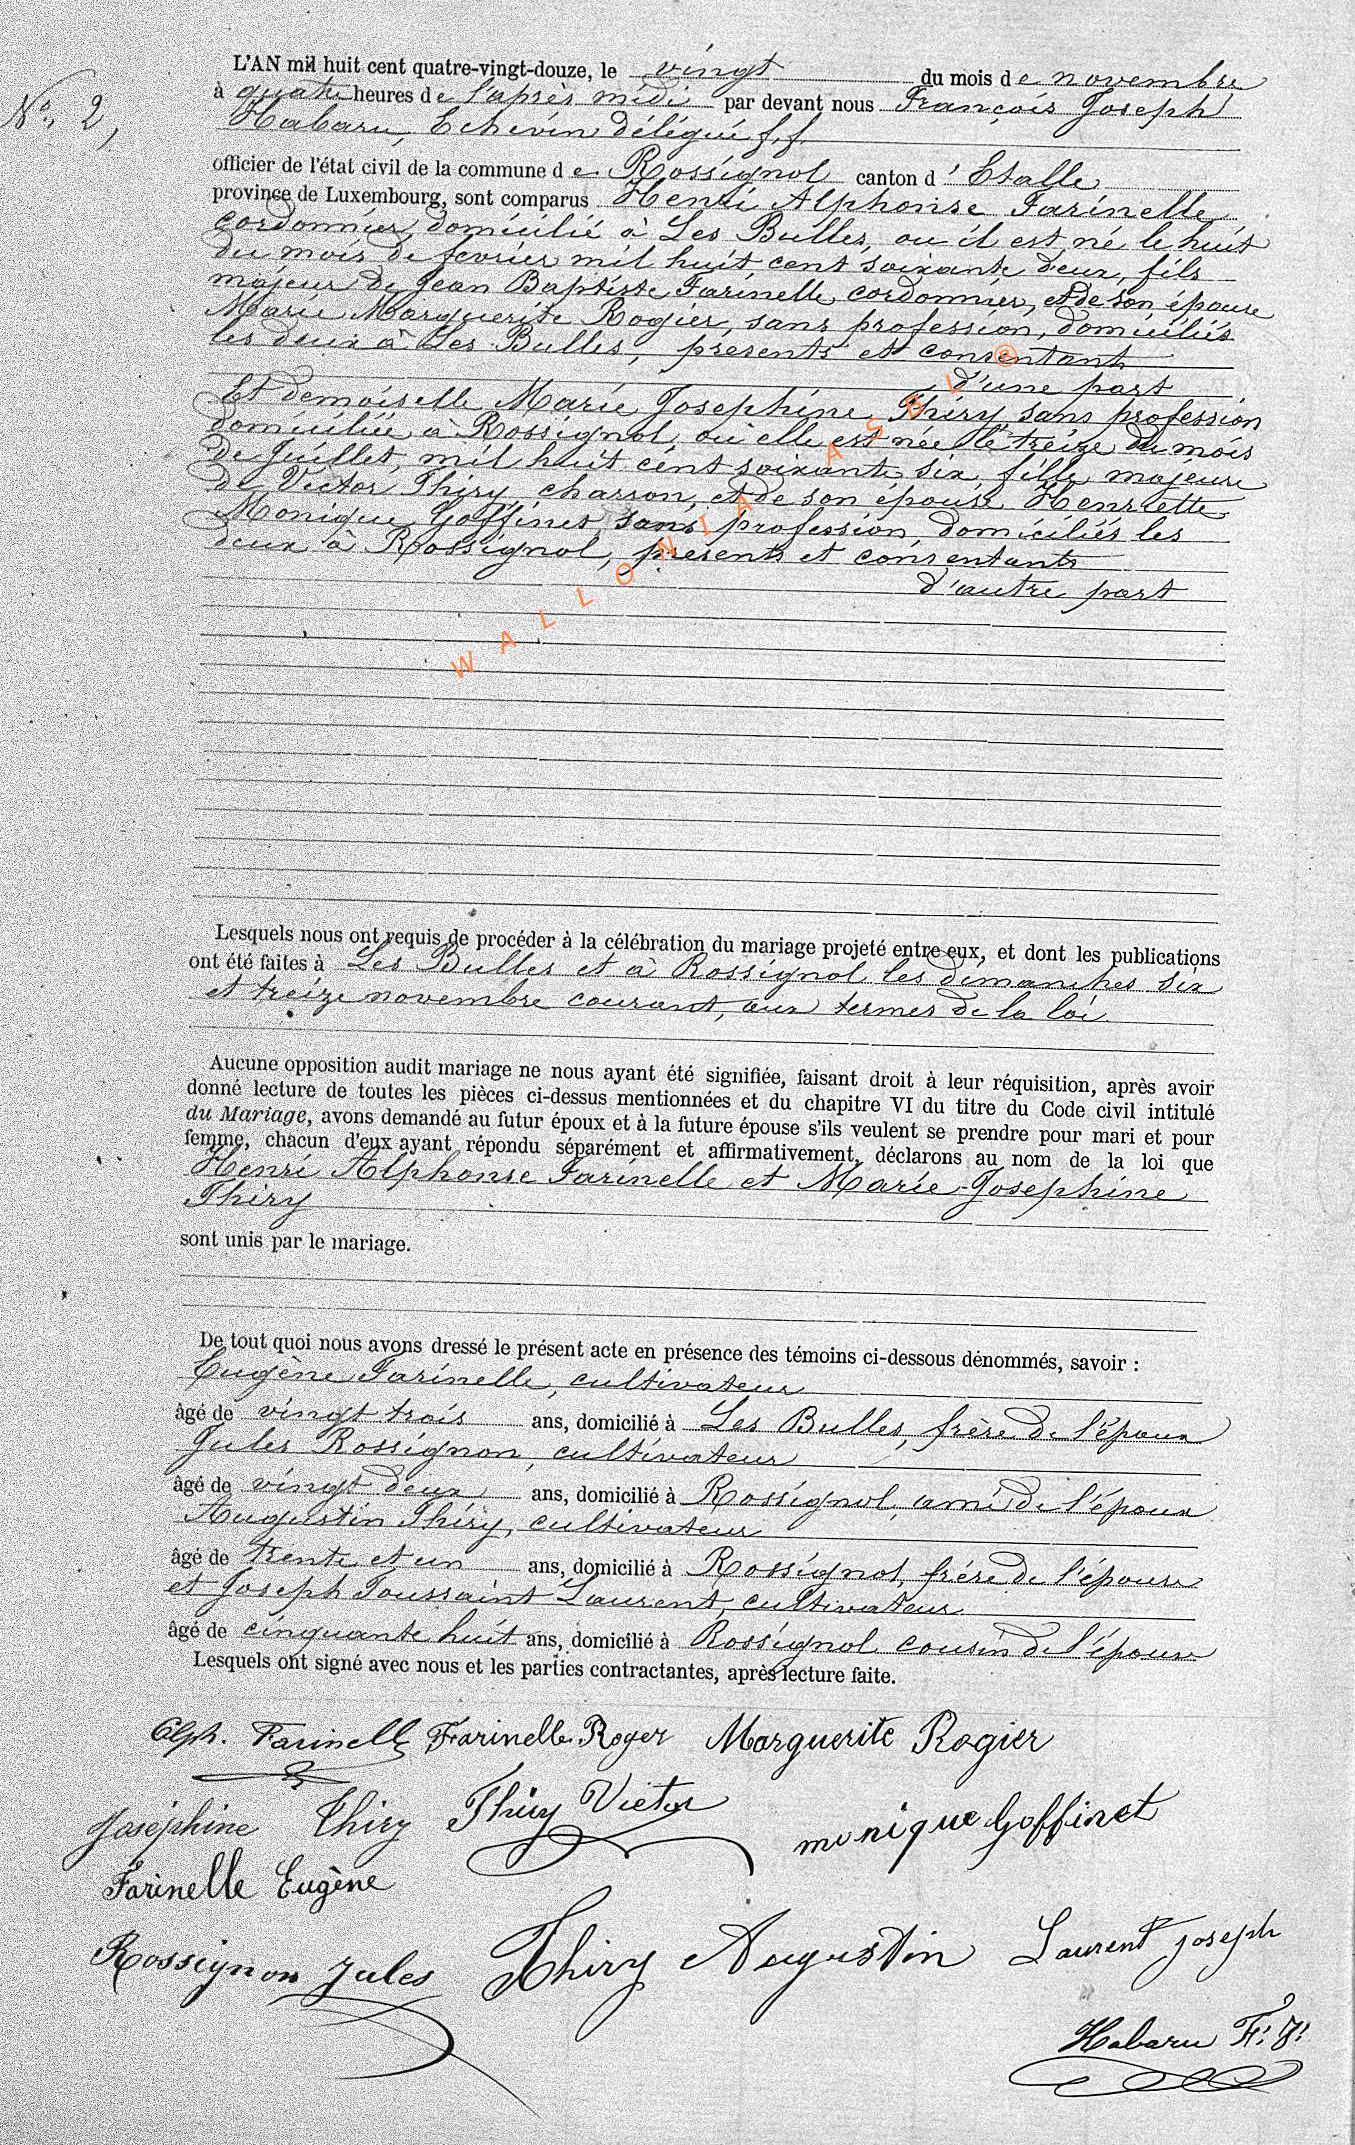 L'AN mil huit cent quatre-vingt-douze, le vingt du mois de novembre
No. 2,
à quatre heures de l'après midi par devant nous François Joseph
Habaru, Echevin délégué f.f.
officier de l'état civil de la commune de Rossignol canton d'Etalle
province de Luxembourg, sont comparus Henri Alphonse Farinelle,
cordonnier, domicilié à Les Bulles, ou il est né le huit
du mois de fevrier mil huit cent soixante deux, fils
majeur de Jean Baptiste Farinelle, cordonnier, et de son épouse
Marie Marguerite Rogier, sans profession, domiciliés
les deux à Les Bulles, presents et consentant
d'une part
Et demoiselle Marie Josephine Thiry sans profession
domiciliée à Rossignol, où elle est née le treize du mois
de Juillet, mil huit cent soixante six, fille majeure
de Victor Thiry, charron, et de son épouse Henriette
Monique Goffinet, sans profession, domiciliés les
deux à Rossignol, présents et consentants
d'autre part
WALLONIA ASBL ©
Lesquels nous ont requis de procéder à la célébration du mariage projeté entre eux, et dont les publications
ont été faites à Les Bulles et à Rossignol les dimanches six
et treize novembre courant, aux termes de la loi.
Aucune opposition audit mariage ne nous ayant été signifiée, faisant droit à leur réquisition, après avoir
donné lecture de toutes les pièces ci-dessus mentionnées et du chapitre VI du titre du Code civil intitulé
du Mariage, avons demandé au futur époux et à la future épouse s'ils veulent se prendre pour mari et pour
femme, chacun d'eux ayant répondu séparément et affirmativement, déclarons au nom de la loi que
Henri Alphonse Farinelle et Marie-Josephine
Thiry
sont unis par le mariage.
De tout quoi nous avons dressé le présent acte en présence des témoins ci-dessous dénommés, savoir :
Eugène Farinelle, cultivateur
âgé de vingt trois ans, domicilié à Les Bulles, frère de l'époux
Jules Rossignon, cultivateur
âgé de vingt deux ans, domicilié à Rossignol, ami de l'époux
Augustin Thiry, cultivateur
âgé de trente et un ans, domicilié à Rossignol, frére de l'épouse
et Joseph Toussaint Laurent, cultivateur
âgé de cinquante huit ans, domicilié à Rossignol cousin de l'épouse
Lesquels ont signé avec nous et les parties contractantes, après lecture faite.
Alph. Farinelle Farinelle Roger Marguerite Rogier
Joséphine Thiry Thiry Victor monique Goffinet
Farinelle Eugène
Rossignon Jules Thiry Augustin Laurent Joseph
Habaru F. J.